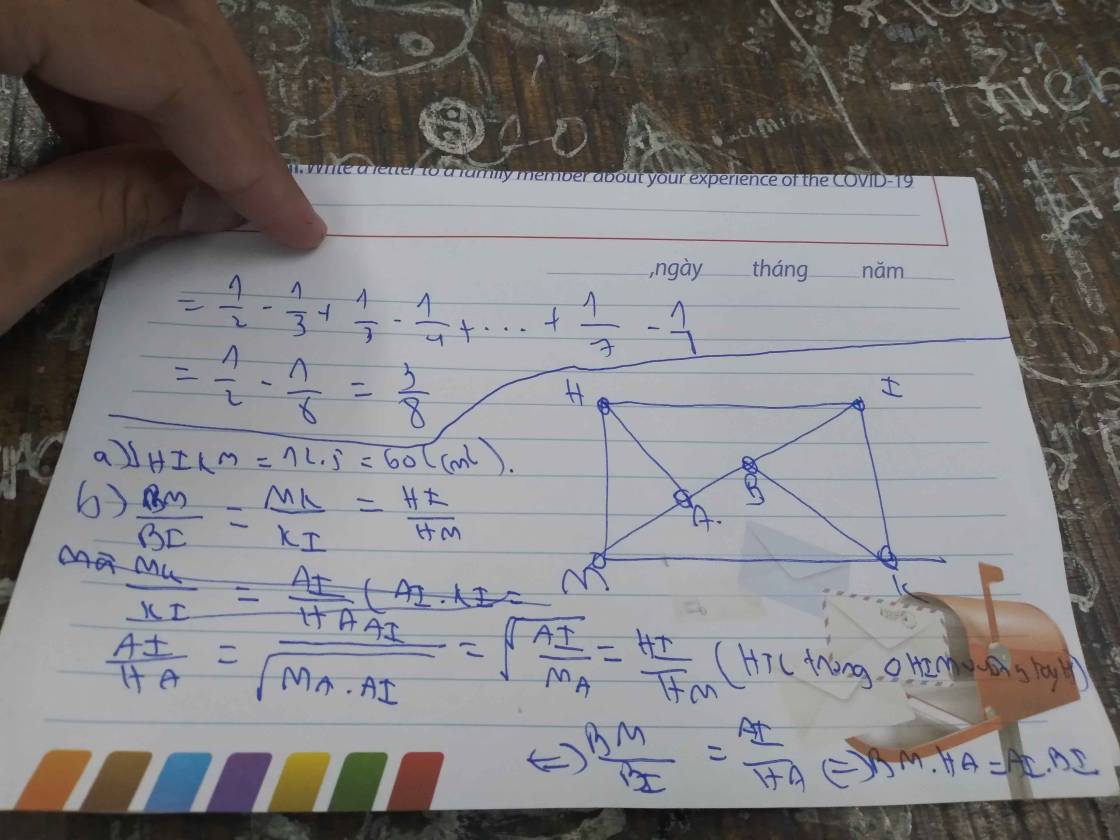 . Write a letter to a family member about your experience of the COVID-19
,ngày tháng năm
= 1/2 - 1/3 + 1/3 - 1/4 + ... + 1/7 - 1
= 1/2 - 1/8 = 3/8
H I
a) SHIKM = 12.5 = 60 (cm2).
b) BM/BI = MK/KI = HI/HM
B
A.
M K
Mà MK/KI = AI/HA (AI.KI =
AI/HA = AI/√MA.AI = √AI/MA = HI/HM (HTL trong Δ HIM vuông tại H)
<=> BM/BI = AI/HA <=> BM.HA = AI.BI